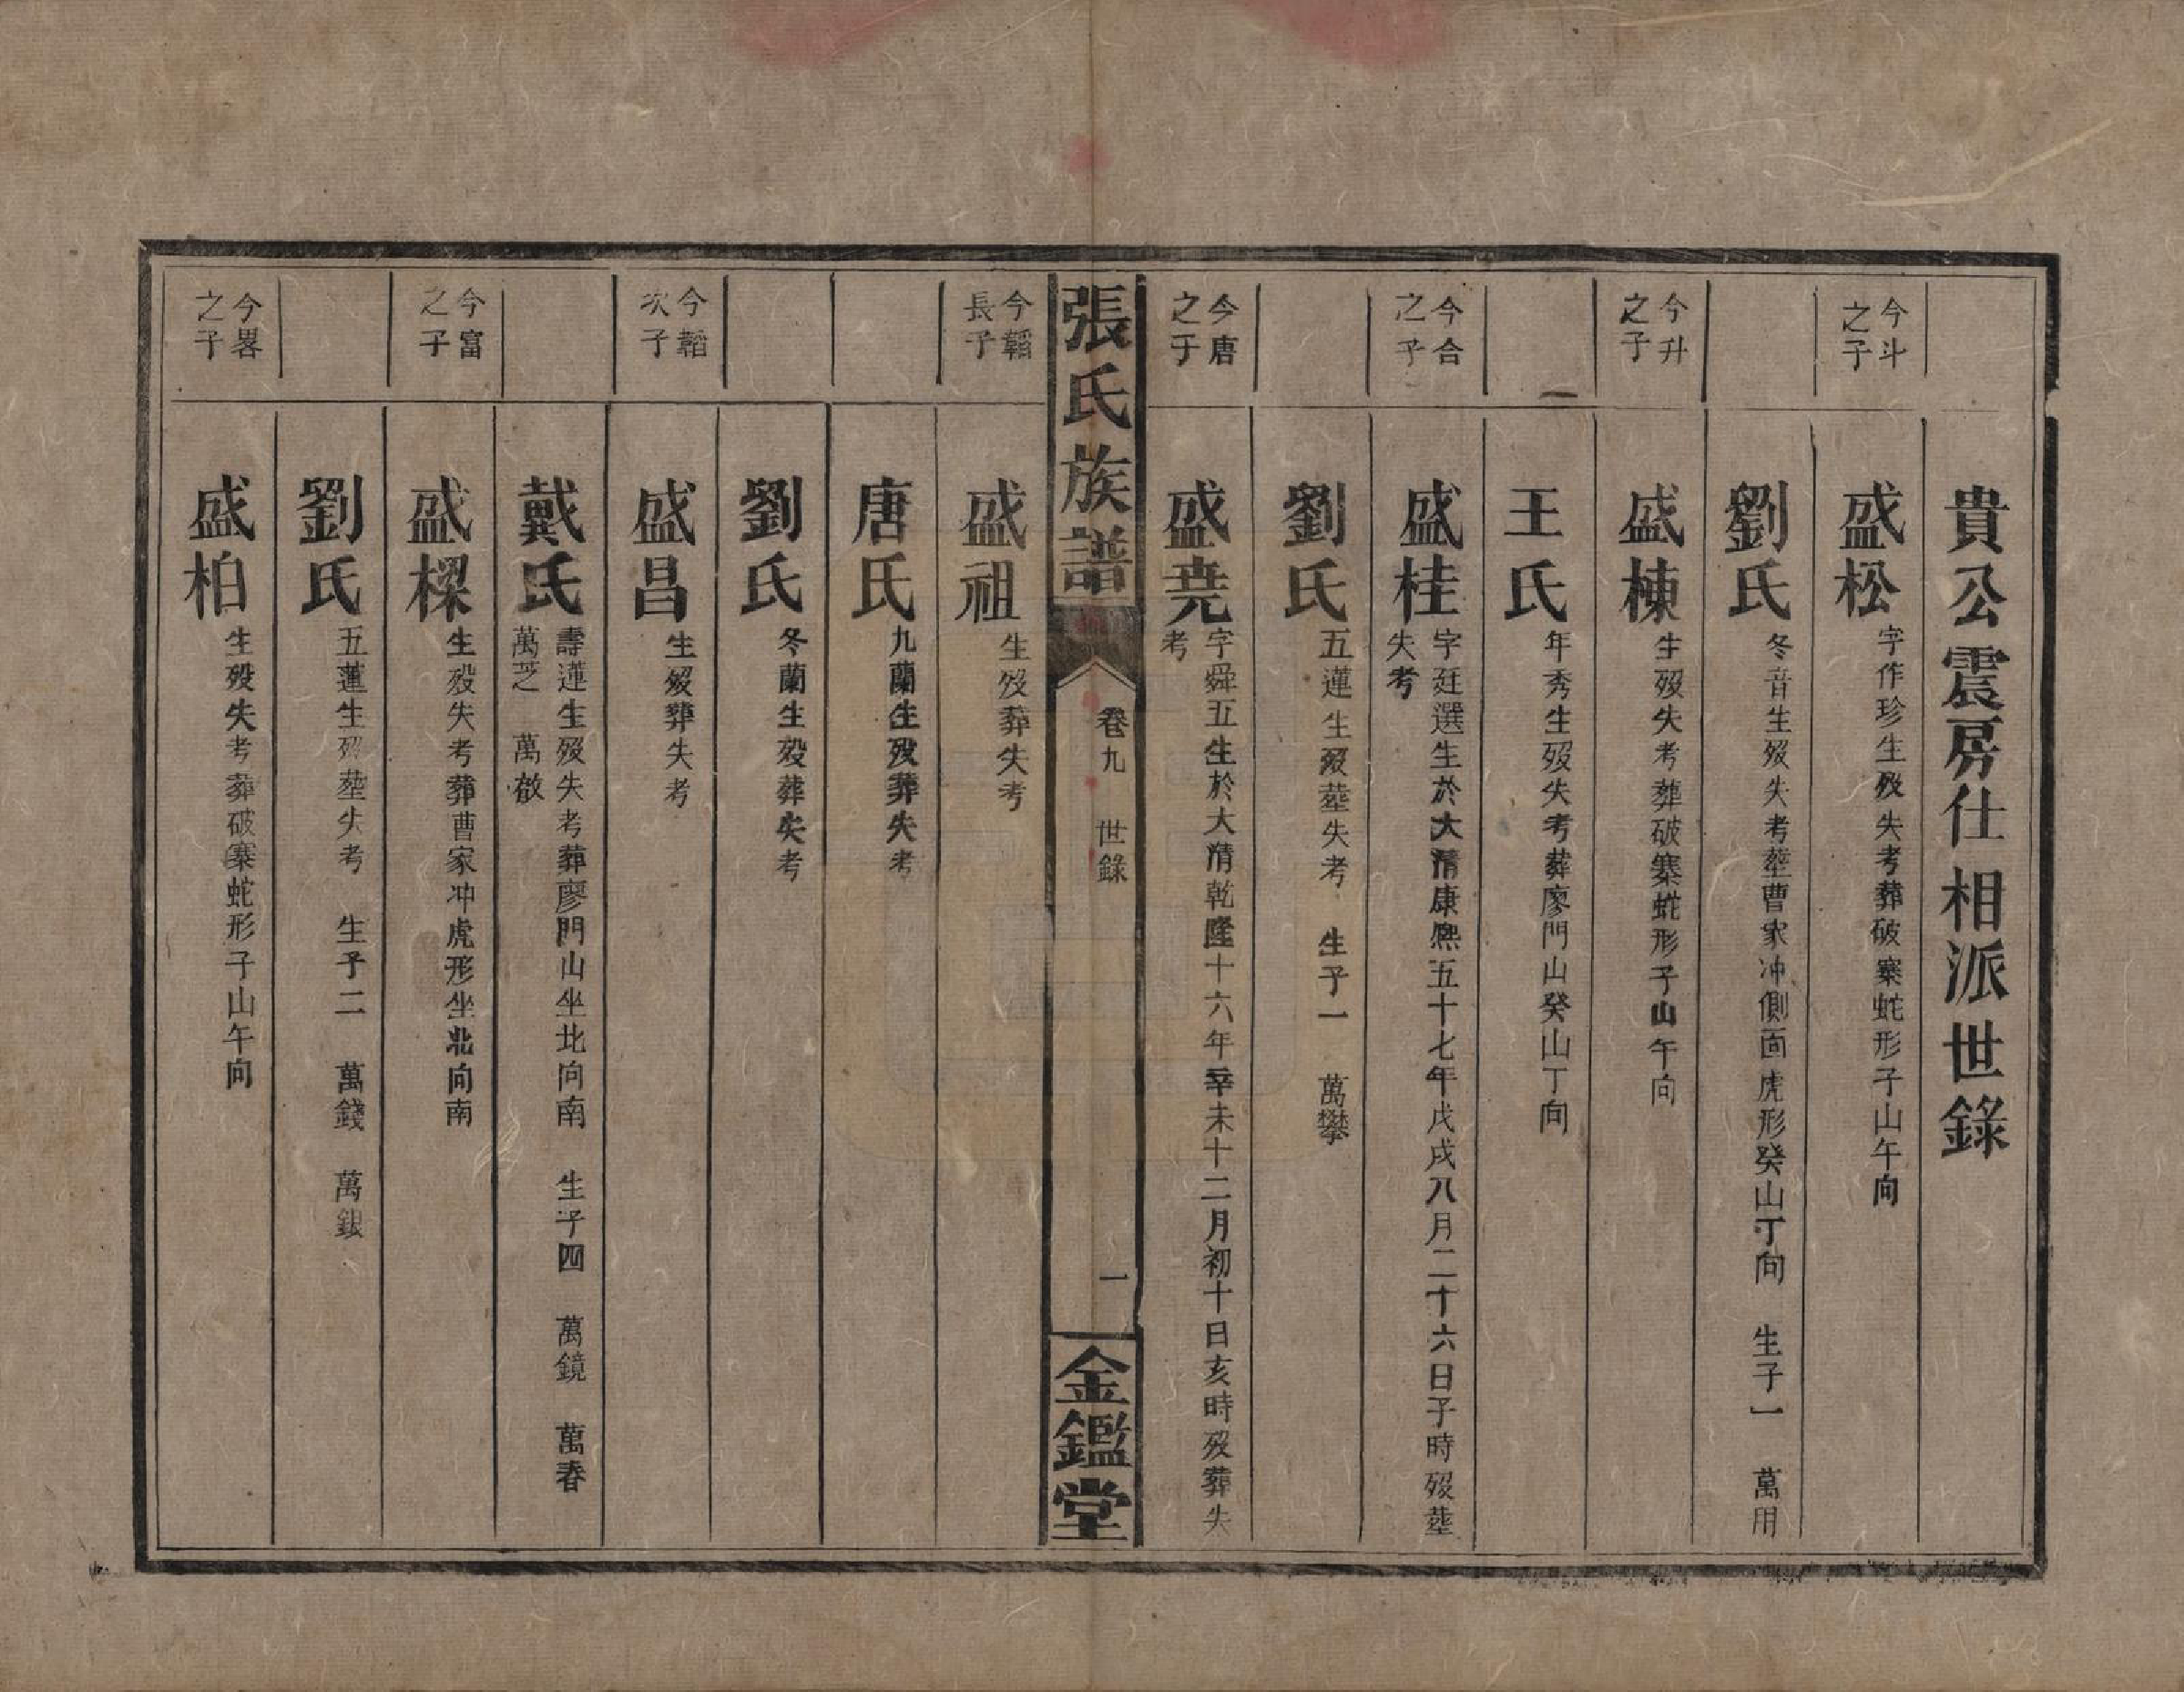 貴公震房仕相派世錄
今斗之子
盛松 字作珍生歿失考葬破寨蛇形子山午向
劉氏 冬音生歿失考塟曹家冲側面虎形癸山丁向 生子一 萬用
今升之子
盛棟 生歿失考葬破寨蛇形子山午向
王氏 年秀生歿失考葬廖門山癸山丁向
今合之子
盛桂 字廷選生於大清康熙五十七年戊戌八月二十六日子時歿塟失考
劉氏 五蓮生歿塟失考 生子一 萬攀
今唐之子
盛堯 字舜五生於大清乾隆十六年辛未十二月初十日亥時歿葬失考
張氏族譜 卷九 世錄 一 金鑑堂
今韜長子
盛祖 生歿葬失考
唐氏 九蘭生歿葬失考
劉氏 冬蘭生歿葬失考
今韜次子
盛昌 生歿葬失考
戴氏 壽蓮生歿失考葬廖門山坐北向南 生子四 萬鏡 萬春 萬芝 萬敘
今富之子
盛樑 生歿失考葬曹家冲虎形坐北向南
劉氏 五蓮生歿塟失考 生子二 萬錢 萬銀
今畧之子
盛柏 生歿失考葬破寨蛇形子山午向